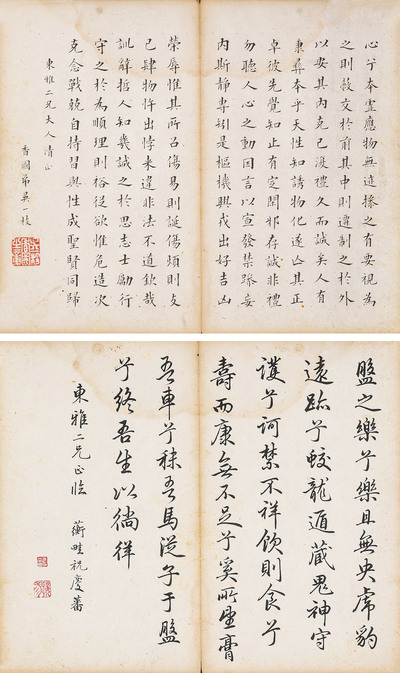 心兮本虛應物無迹操之有要視為
之則蔽交於前其中則遷制之於外
以安其內克己復禮久而誠矣人有
秉彝本乎天性知誘物化遂亡其正
卓彼先覺知止有定閑邪存誠非禮
勿聽人心之動因言以宣發禁躁妄
內斯靜專矧是樞機興戎出好吉凶
榮辱惟其所召傷易則誕傷煩則支
己肆物忤出悖來違非法不道欽哉
訓辭哲人知幾誠之於思志士勵行
守之於為順理則裕從欲惟危造次
克念戰兢自持習與性成聖賢同歸
東雅二兄大人清正
香國弟吳一枝
盤之樂兮樂且無央虎豹
遠跡兮蛟龍遁藏鬼神守
護兮訶禁不祥飲則食兮
壽而康無不足兮奚所望膏
吾車兮秣吾馬從子于盤
兮終吾生以徜徉
東雅二兄正臨
蘅畦祝慶蕃